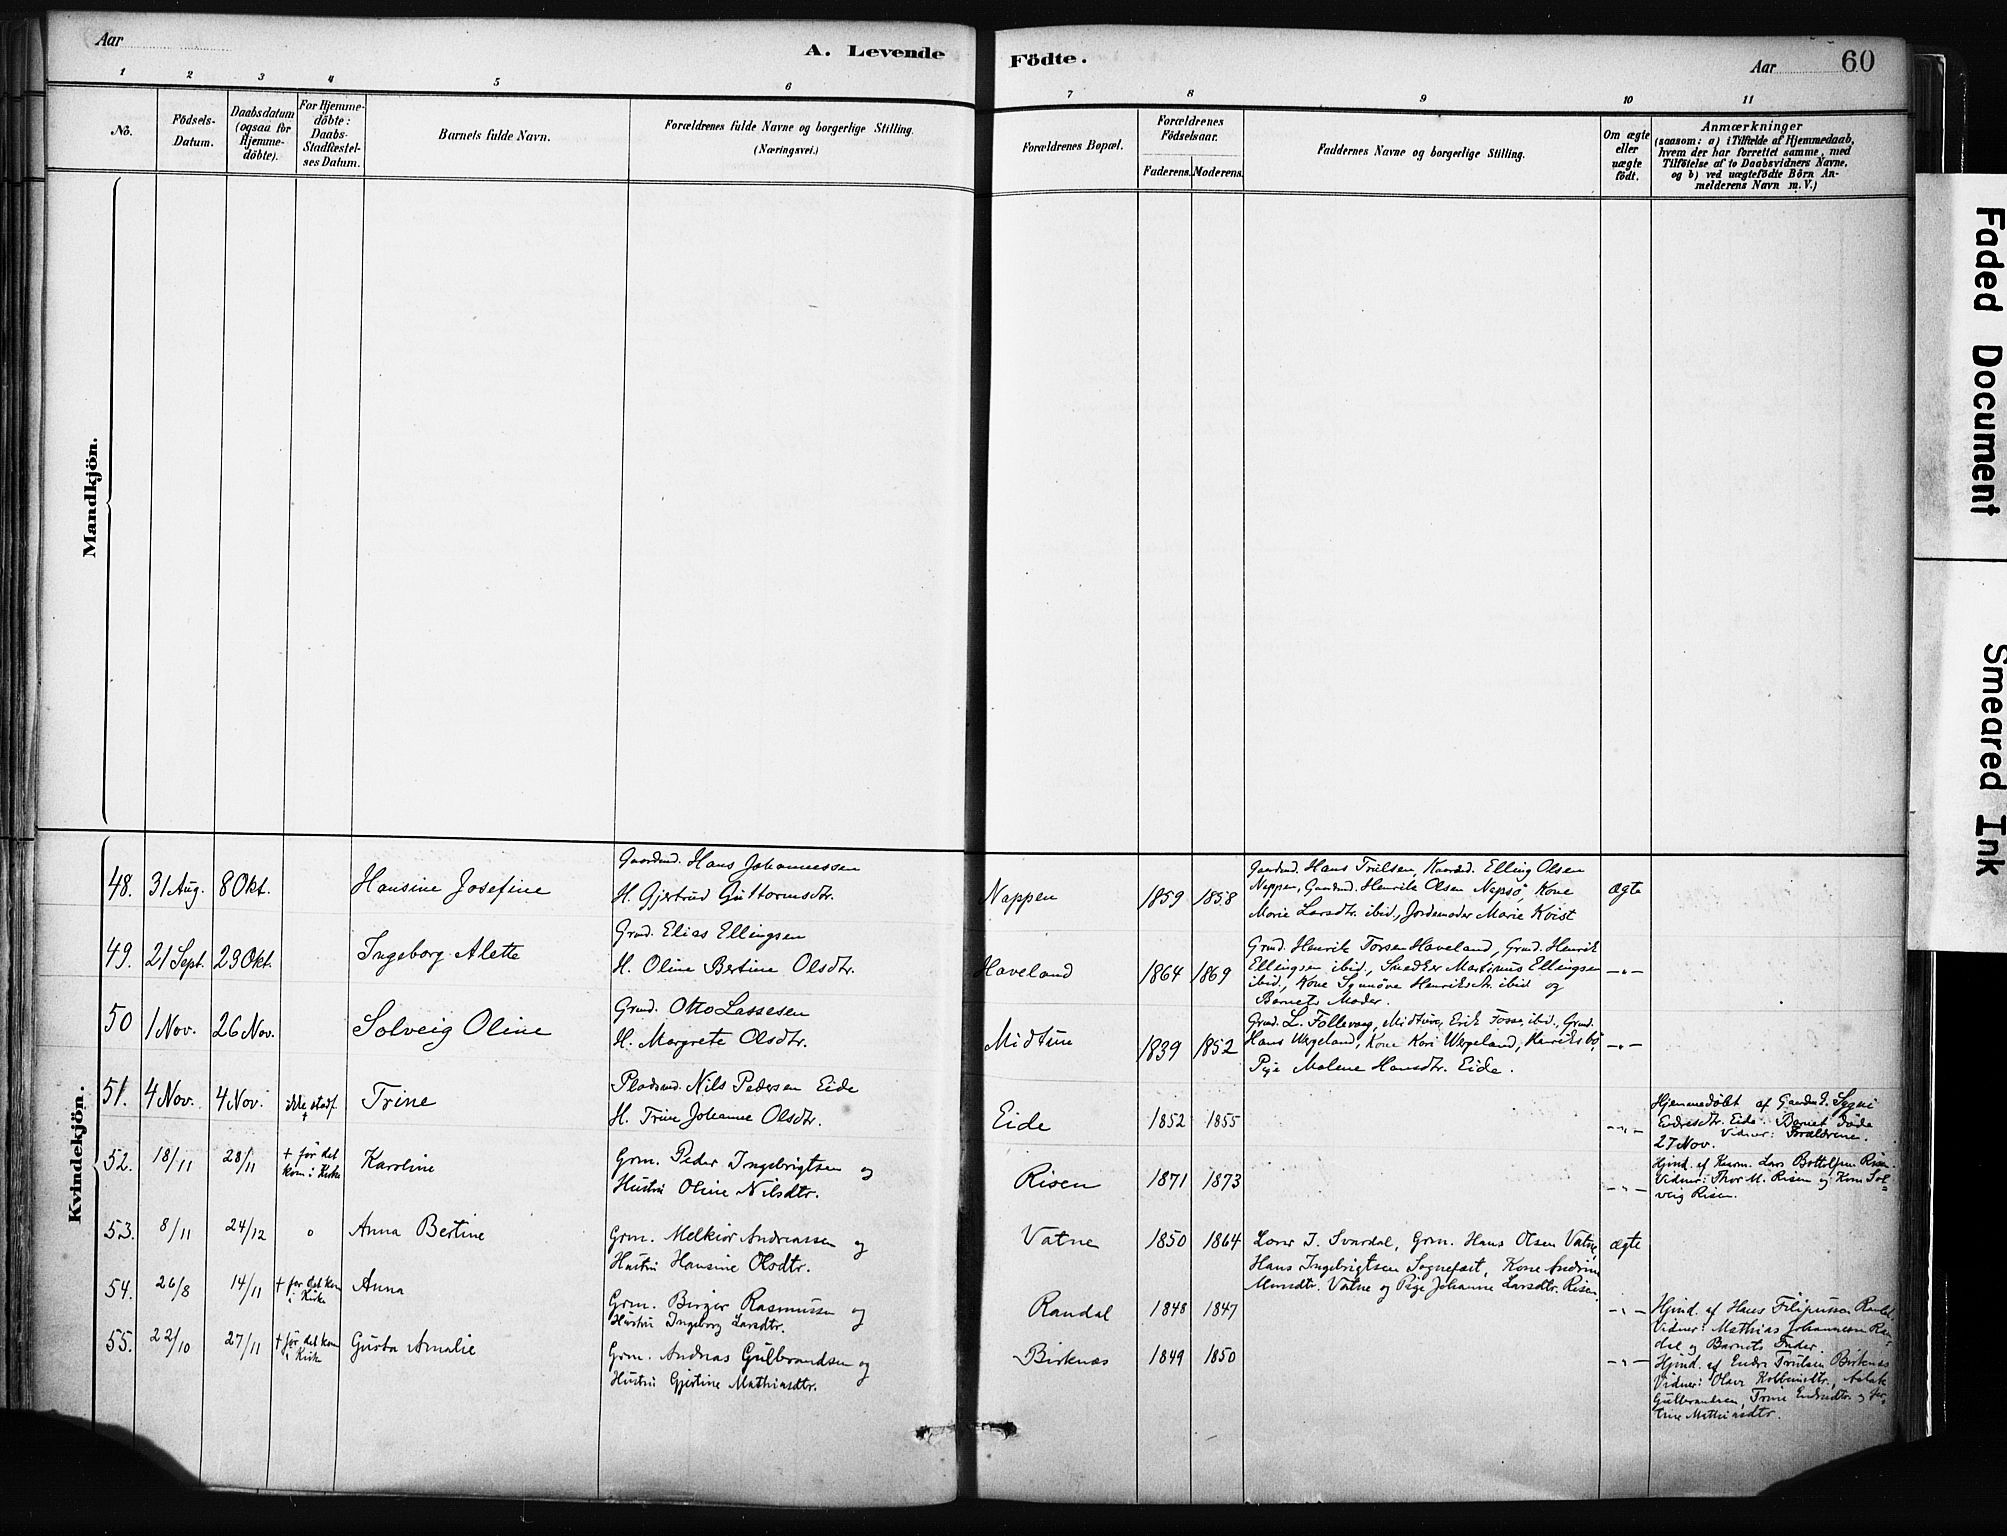 Aar
A. Levende
Födte.
Aar
60
1 2 3 4 5 6 7 8 9 10 11
No.
Födsels-
Datum.
Daabsdatum
(ogsaa for
Hjemme-
döbte).
For Hjemme-
döbte:
Daabs-
Stadfæstel-
ses Datum.
Barnets fulde Navn.
Forældrenes fulde Navne og borgerlige Stilling.
(Næringsvei.)
Forældrenes Bopæl.
Forældrenes
Födselsaar.
Faderens.
Moderens.
Faddernes Navne og borgerlige Stilling.
Om ægte
eller
uægte
födt.
Anmærkninger
(saasom: a) i Tilfælde af Hjemmedaab,
hvem der har forrettet samme, med
Tilföielse af to Daabsvidners Navne,
og b) ved uægtefödte Börn An-
melderens Navn m. V.)
Mandkjön.
Kvindekjön.
48. 31 Aug. 8 Okt. Hansine Josefine
Gaardmd. Hans Johannessen
H. Gjertrud Guttormsdtr.
Nappen 1859 1858
Gaardmd. Hans Trulsen, Elling Olsen
Nappen, Gaardmd. Henrik Olsen Nepsö, Kone
Marie Larsdtr. ibid., Jordemoder Marie Kvist
ægte
49. 21 Sept. 29 Okt. Ingeborg Alette
Grmd. Elias Ellingsen
H. Oline Bertine Olsdtr.
Haveland 1864 1869
Grmd. Henrik Torsen Haveland, Grmd. Henrik
Ellingsen ibid., Martinus Ellingsen
ibid., Kone Synnöve Henriksdtr. ibid og
Barnets Moder.
-"-
50 1 Nov. 26 Nov. Solveig Oline
Grmd. Otto Lassesen
H. Margrete Olsdtr.
Midtun 1839 1852
Grmd. L. Follevaag, Midtun, Erik Fosse, ibid., Grmd.
Hans Wergeland, Kone Kari Wergeland, Henriksbö,
Pige Malene Hansdtr. Eide.
-"-
51. 4 Nov. 4 Nov. ikke stadf. + Trine
Pladsmd. Nils Pedersen Eide
H. Trine Johanne Olsdtr.
Eide 1852 1855
-"-
Hjemmedöbt af Gaardmd.
Endresdtr. Eide. Barnet döde
27 Nov. Vidner: Forældrene.
52. 18/11 28/11 + för det kom i Kirke Karoline
Grm. Peder Ingebrigtsen og
Hustru Oline Nilsdtr.
Risen 1871 1873
-"-
Hjmd. af Kaarm. Lars Bottolfsen Risen.
Vidner: Thor M. Risen og Kone Sol-
veig Risen.
53. 8/11 24/12 o Anna Bertine
Grm. Melkior Andreassen og
Hustru Hansine Olsdtr.
Vatne 1850 1864
Lærer J. Svardal, Grm. Hans Olsen Vatne,
Hans Ingebrigtsen Sognefæst, Kone Andrine
Monsdtr. Vatne og Pige Johanne Larsdtr. Risen.
ægte
54. 26/8 14/11 + för det kom i Kirke Anna
Grm. Birger Rasmussen og
Hustru Ingeborg Larsdtr.
Randal 1848 1847
-"-
Hjmd. af Hans Filipussen Randal.
Vidner: Mathias Johannesen Ran-
dal og Barnets Fader.
55. 22/10 27/11 + för det kom i Kirke Gusta Amalie
Grm. Andreas Gulbrandsen og
Hustru Gjertine Mathiasdtr.
Birknæs 1849 1850
-"-
Hjmd. af Endre Trulsen Birknæs
Vidner: Olava Kolbeinsdtr., Aslak
Gulbrandsen, Trine Endresdtr. og Ger-
tine Mathiasdtr.
Faded Document
Smeared Ink